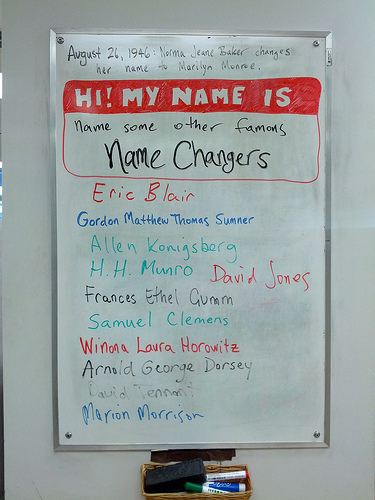 August 26, 1946: Norma Jeane Baker changes
her name to Marilyn Monroe.
HI! MY NAME IS
name some other famous
Name Changers
Eric Blair
Gordon Matthew Thomas Sumner
Allen Konigsberg
H.H. Munro
David Jones
Frances Ethel Gumm
Samuel Clemens
Winona Laura Horowitz
Arnold George Dorsey
David Tennant
Marion Morrison